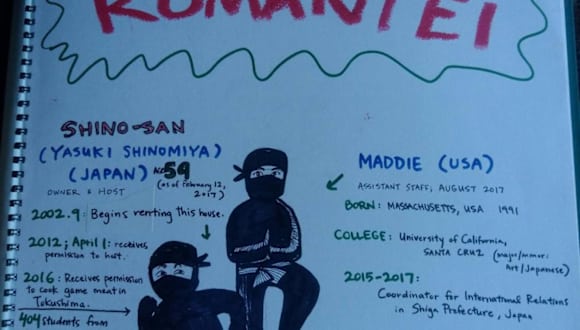 ROMANTEI
SHINO-SAN
(YASUKI SHINOMIYA)
(JAPAN) AGE 59
(as of february 12,
2017)
OWNER & HOST
2002.9: Begins renting this house.
2012; April 1: receives
permission to host.
2016: Receives permission
to cook game meat in
Tokushima.
404 students from
MADDIE (USA)
ASSISTANT STAFF; AUGUST 2017
BORN: MASSACHUSETTS, USA 1991
COLLEGE: University of California,
SANTA CRUZ (major/minor:
Art/Japanese)
2015-2017:
Coordinator for International Relations
in Shiga Prefecture, Japan